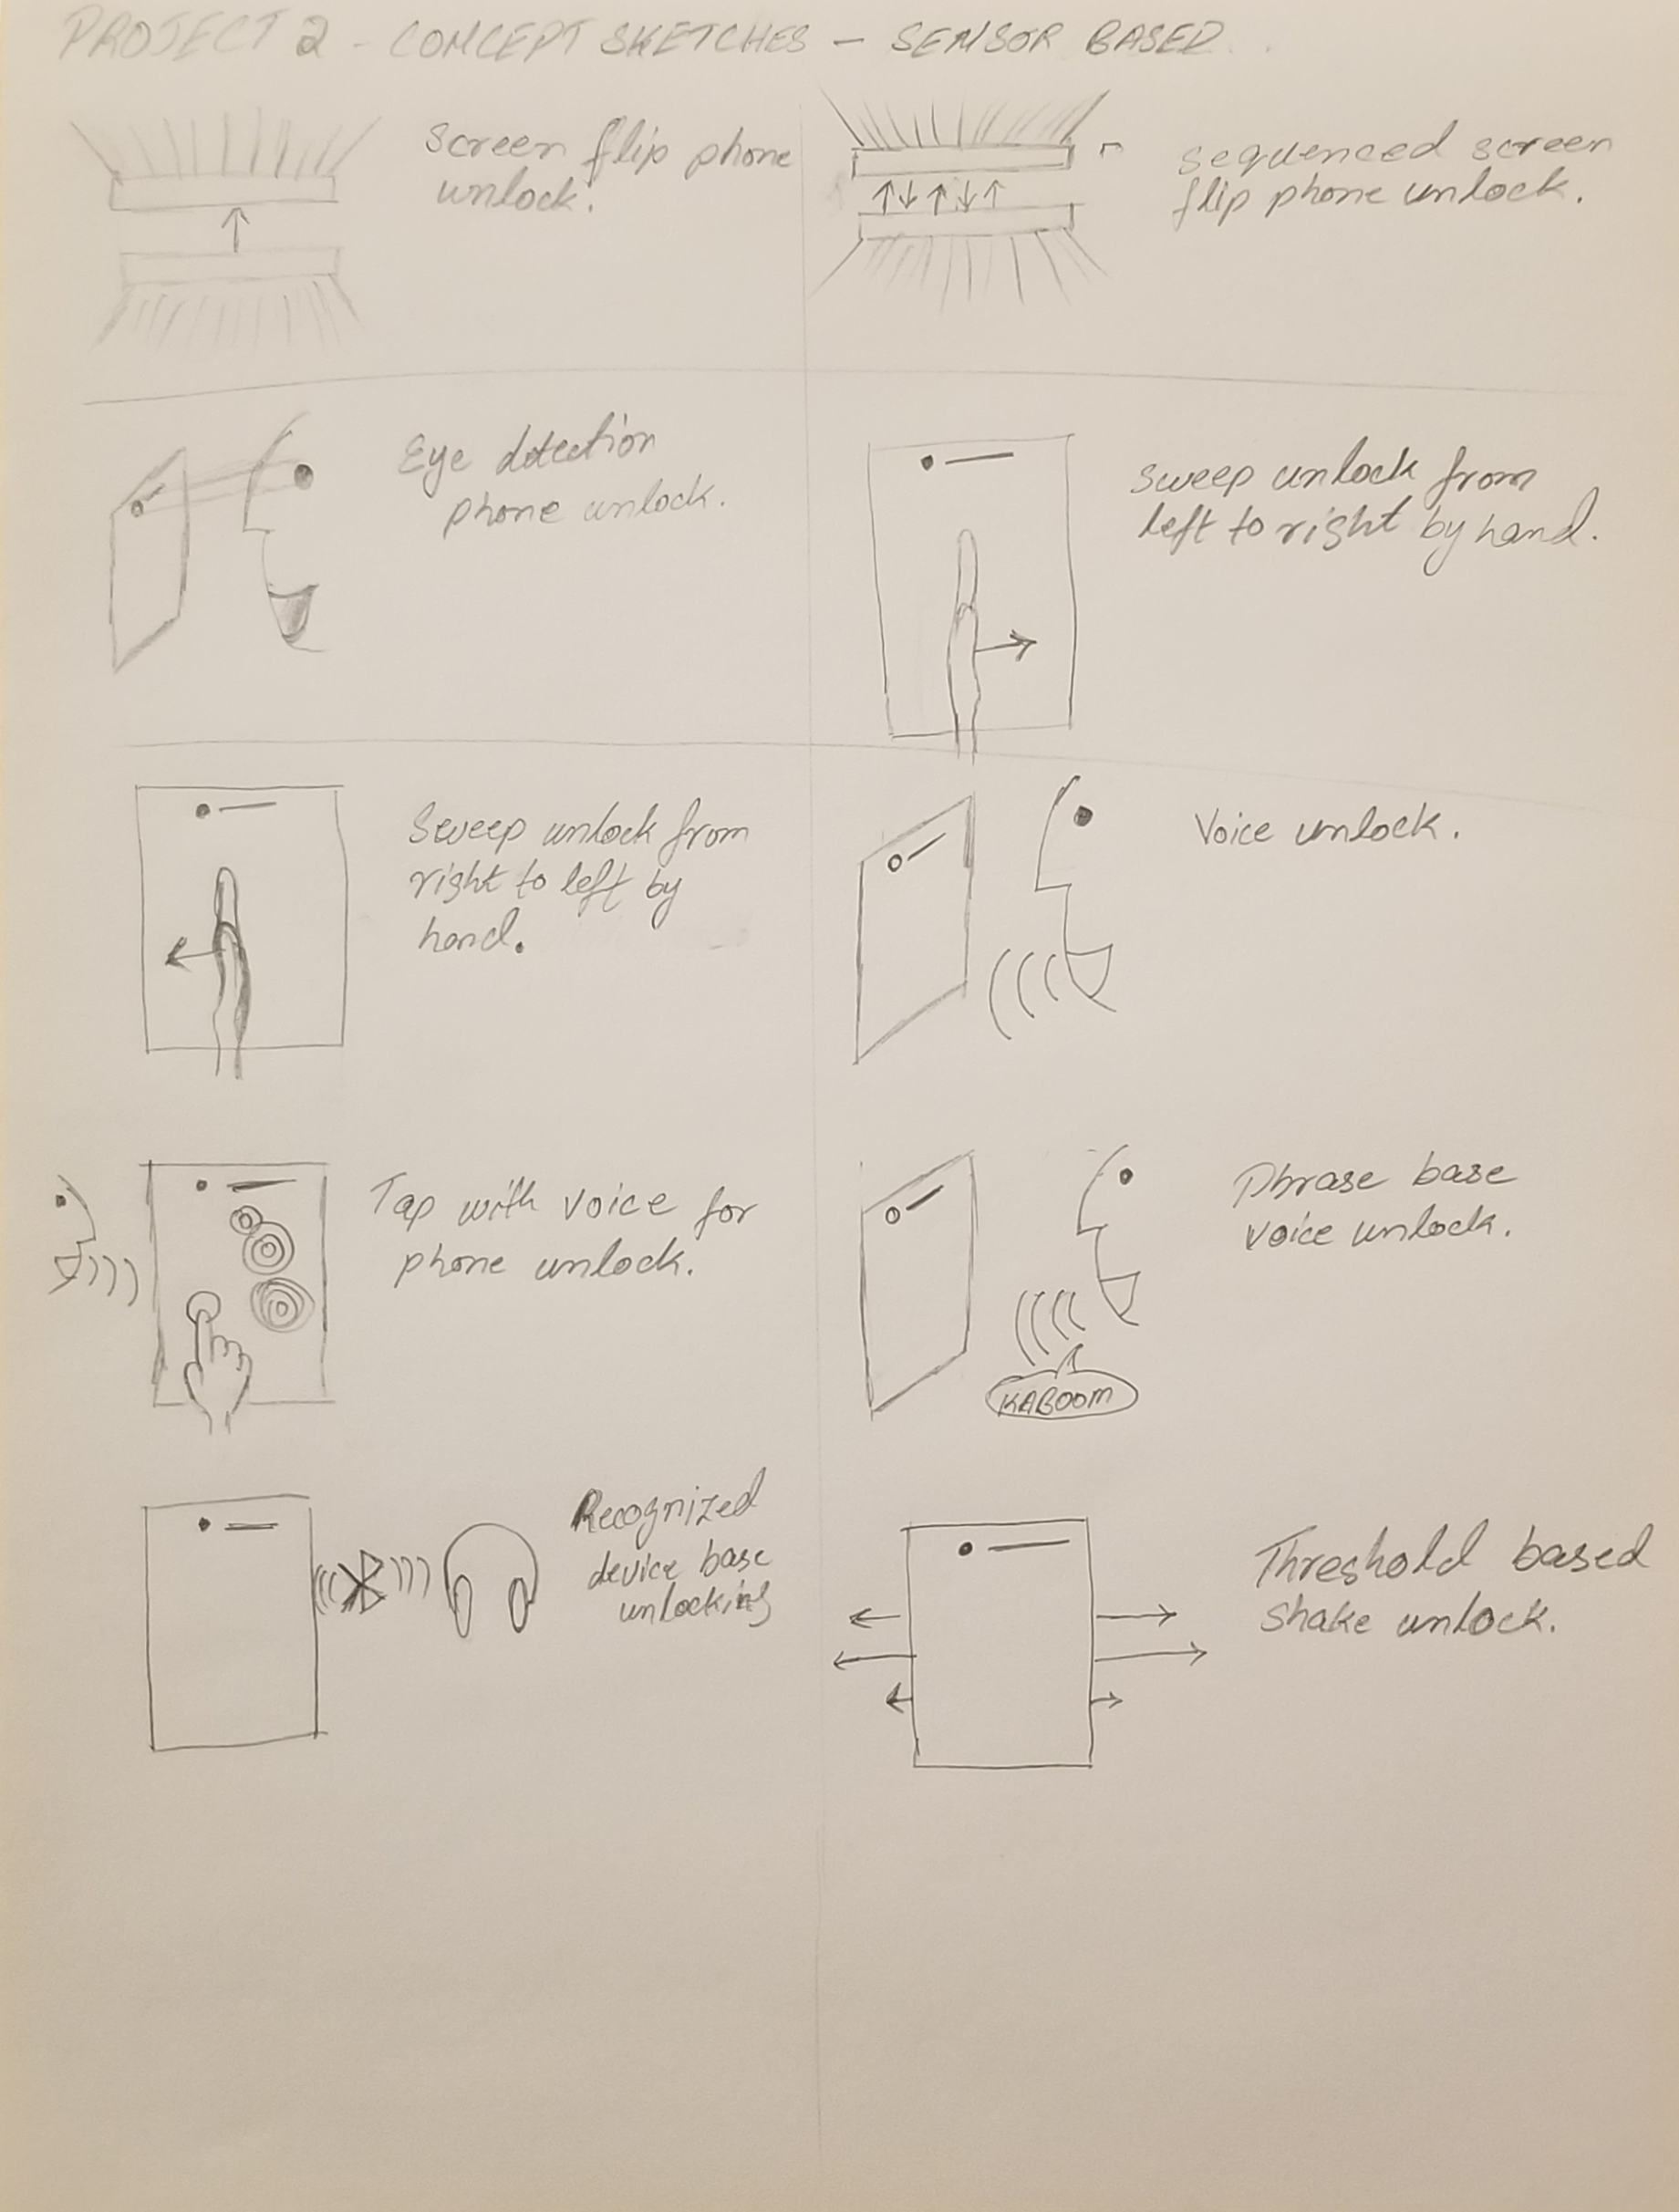 PROJECT 2 - CONCEPT SKETCHES - SENSOR BASED.
Screen flip phone
unlock.
sequenced screen
flip phone unlock.
Eye detection
phone unlock.
Sweep unlock from
left to right by hand.
Sweep unlock from
right to left by
hand.
Voice unlock.
Tap with voice for
phone unlock.
Phrase base
voice unlock.
KABOOM
Recognized
device base
unlocking
Threshold based
shake unlock.